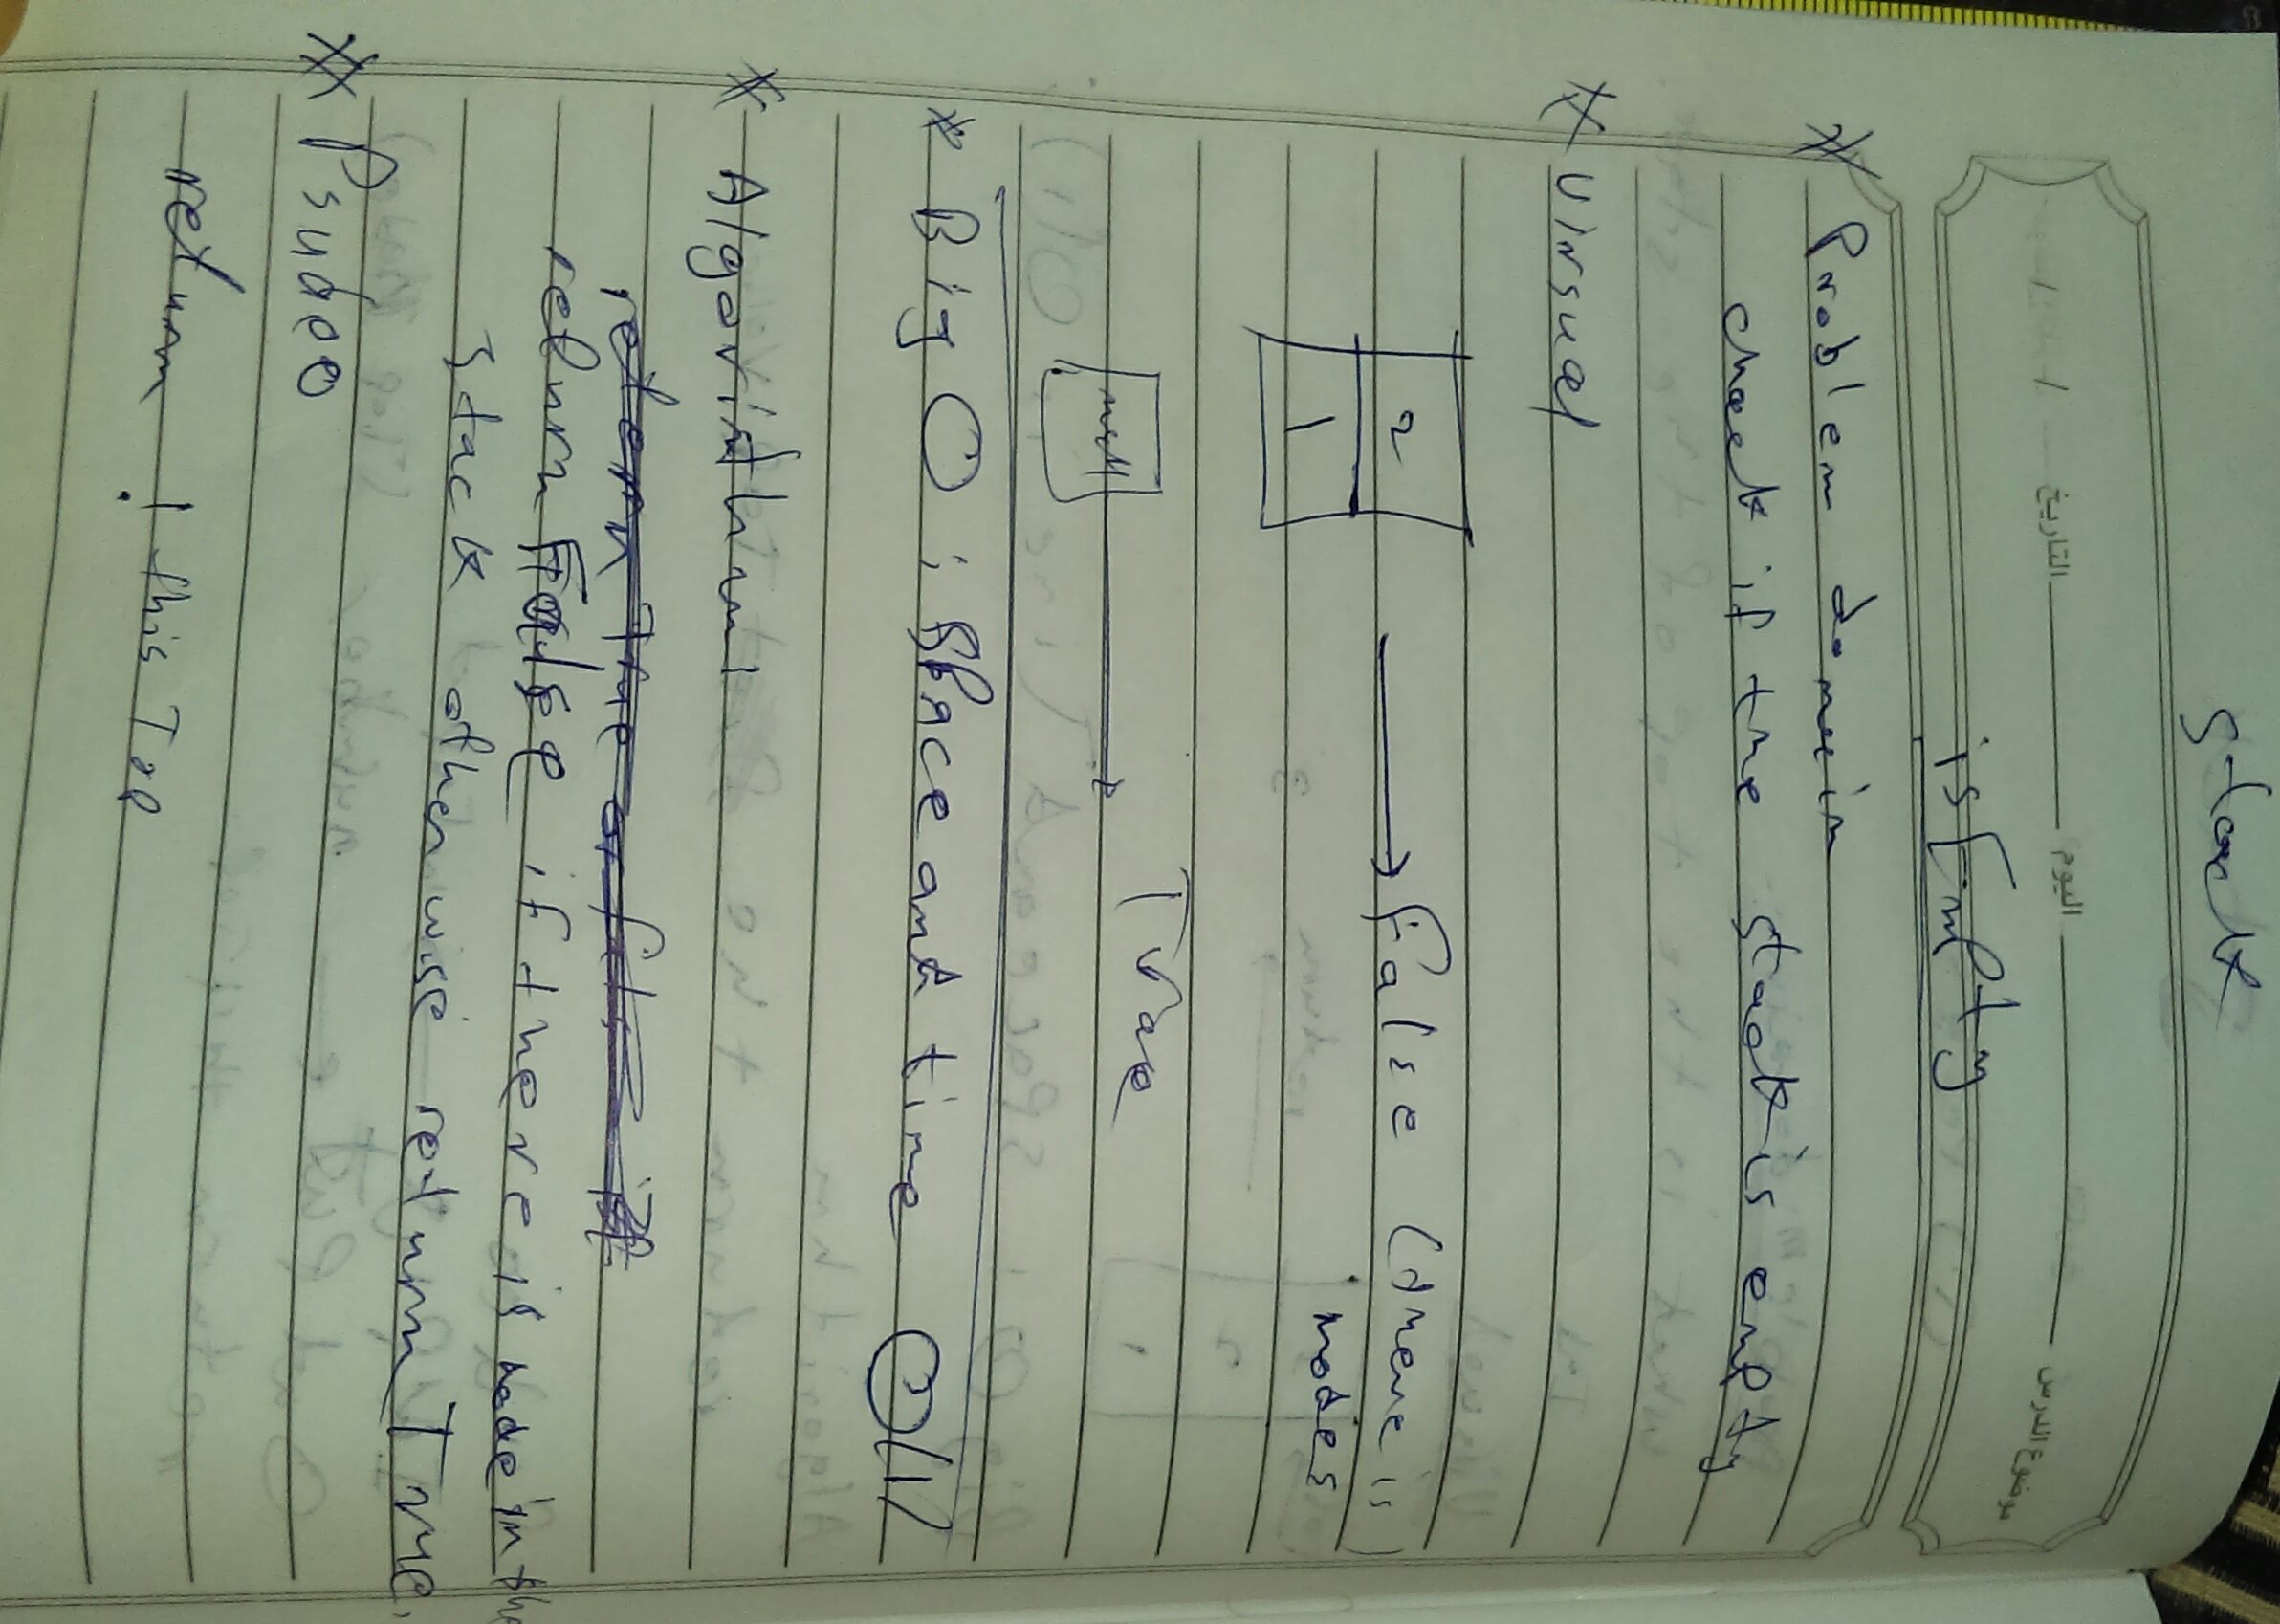 Stack
التاريخ اليوم موضوع الدرس
isEmpty
* Problem domain
check if the stack is empty
* Uirsual
2 → False (there is)
1 nodes
null → True
* Big O : Space and time O(1)
* Algorithm
return False if there is node in the
stack otherwise return True.
* Psudeo
return ! this Top